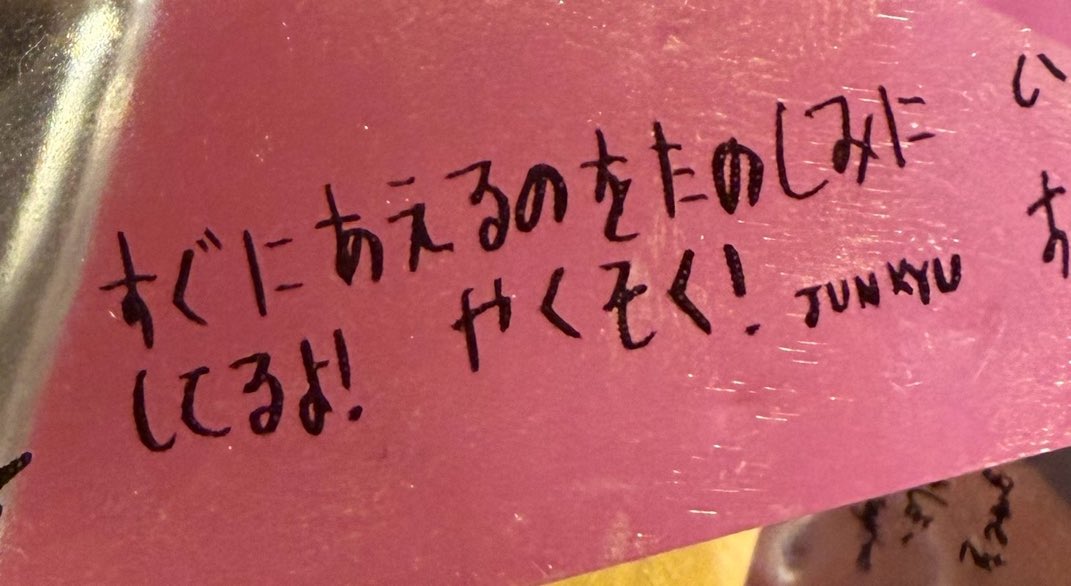 すぐにあえるのをたのしみに
してるよ! やくそく! JUNKYU
い
お